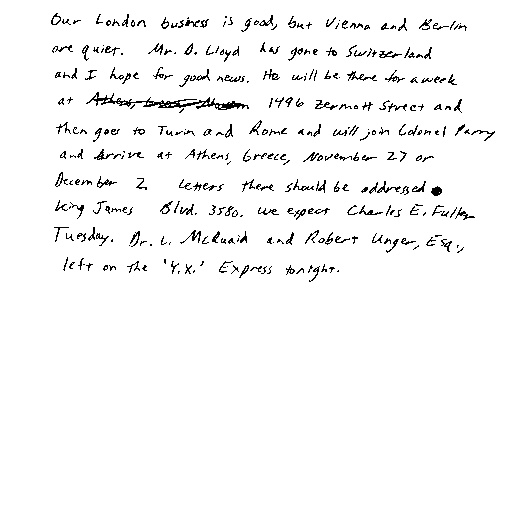 Our London business is good, but Vienna and Berlin
are quiet. Mr. D. Lloyd has gone to Switzerland
and I hope for good news. He will be there for a week
at 1496 Zermott Street and
then goes to Turin and Rome and will join Colonel Parry
and arrive at Athens, Greece, November 27 or
December 2. Letters there should be addressed
King James Blvd. 3580. We expect Charles E. Fuller
Tuesday. Dr. L. McQuaid and Robert Unger, Esq.,
left on the 'Y.X.' Express tonight.